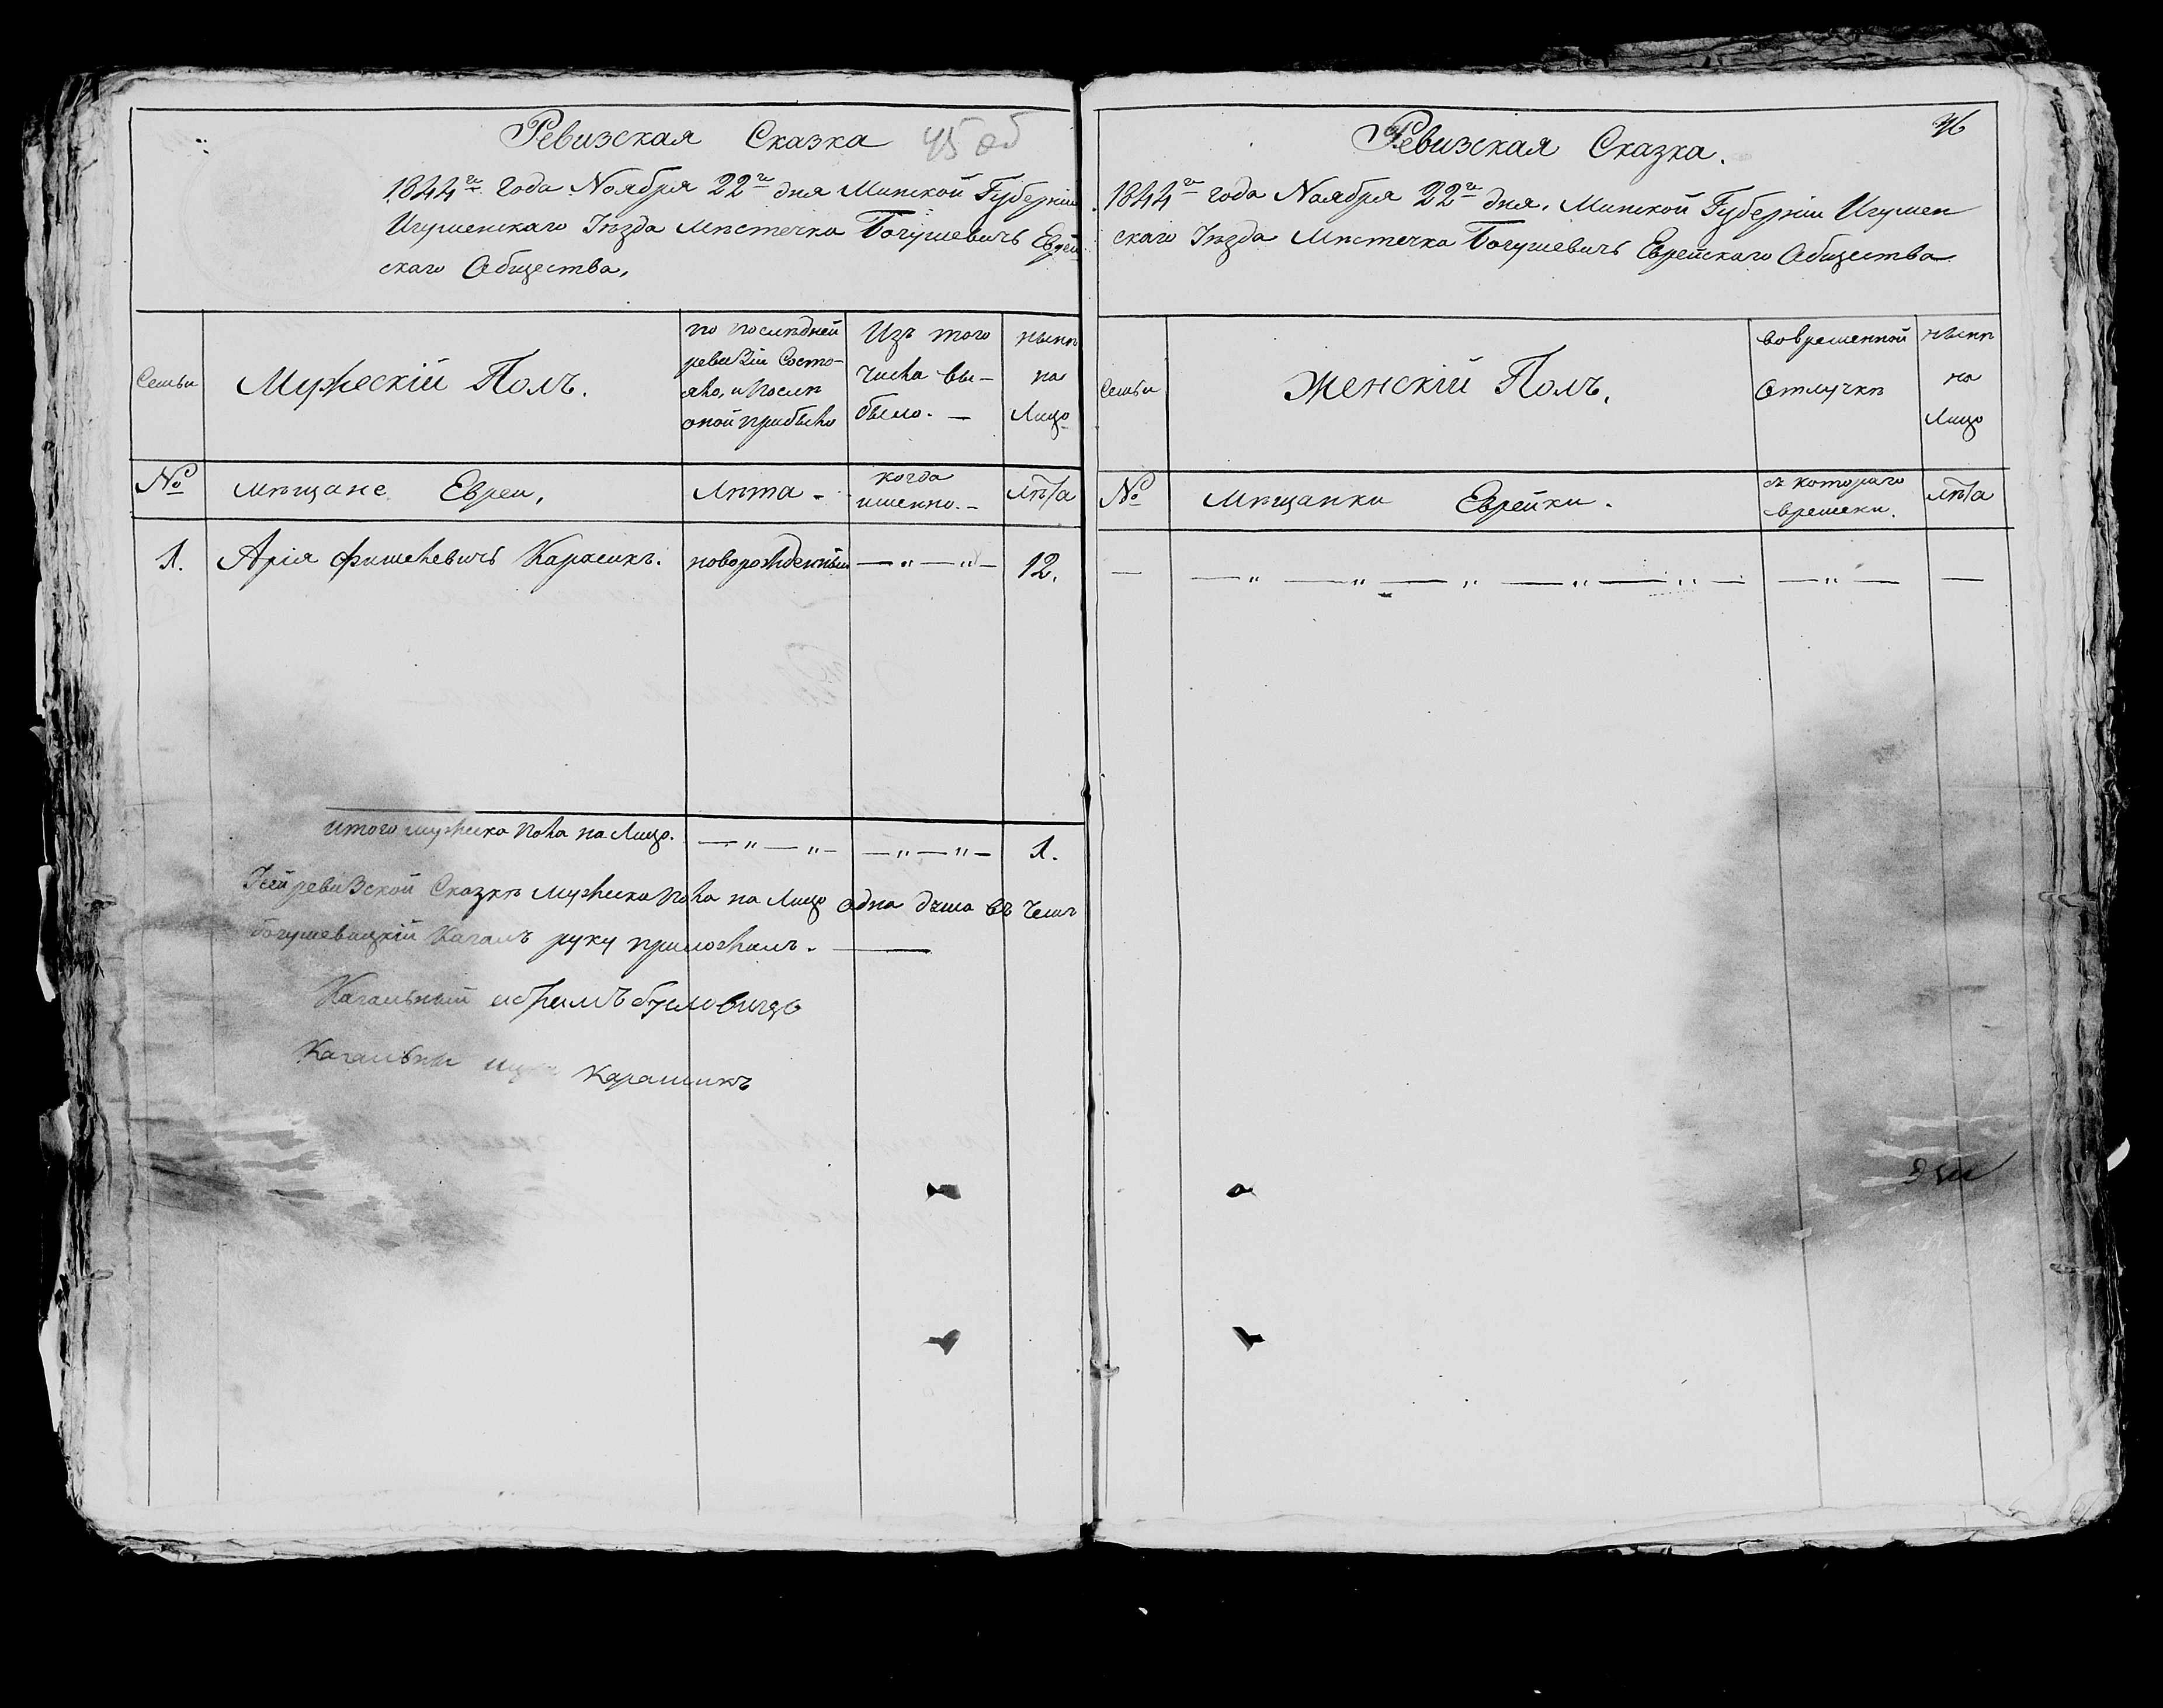 Ревизская Сказка 45 об
1844го года Ноября 22го дня Минской Губерніи
Игуменскаго Уѣзда Мѣстечка Богушевичъ Еврей
скаго Общества.
Семьи
Мужескій Полъ.
по послѣдней
ревизіи состо-
яло, и послѣ
оной прибыло
Изъ того
числа вы-
было. —
нынѣ
на
лицо
№
мѣщане Евреи.
лѣта -
когда
именно. -
лѣта
1. Арія Фишелевичъ Карасикъ. новорожденный — „ — „ — 12.
итого мужеска пола на лицо. — „ — „ — — „ — „ — 1.
Ревизской Сказкѣ мужеска пола на лицо одна душа въ чемъ
Богушевицкій Кагалъ руку приложилъ. —
Кагальный
Кагальны Карашикъ
46
Ревизская Сказка.
1844го года Ноября 22го дня. Минской Губерніи Игумен
скаго Уѣзда Мѣстечка Богушевичъ Еврейскаго Общества
Семьи
Женскій Полъ.
вовременной
отлучкѣ
нынѣ
на
лицо
№
Мѣщанки Еврейки.
съ котораго
времени.
лѣта
— — „ — „ — „ — „ — „ — — „ — —